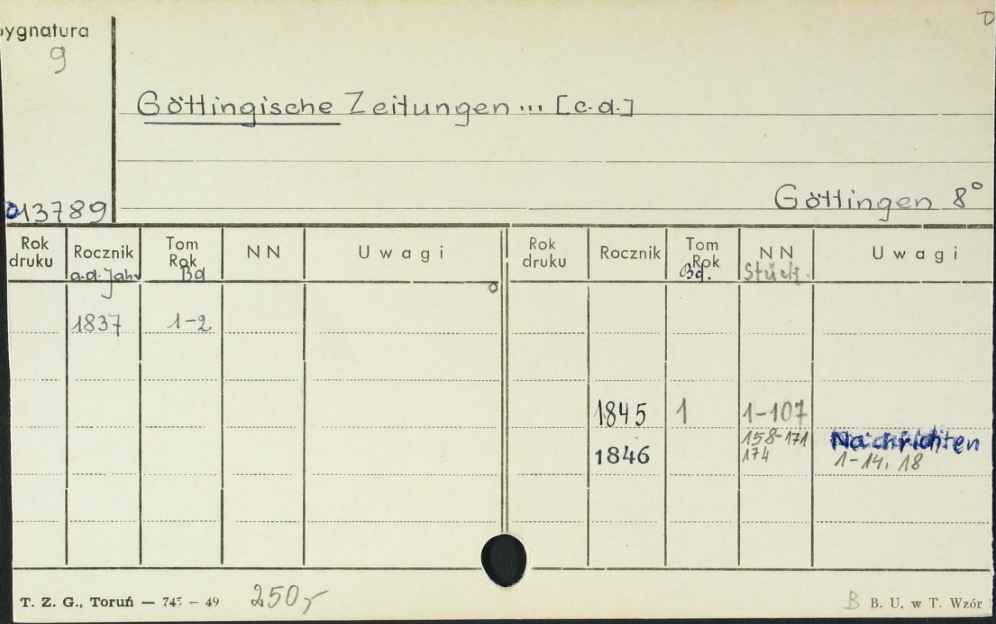 Sygnatura
9
Göttingische Zeitungen ... [c.d.]
Göttingen 8°
013789
Rok druku Rocznik a.d. Jahr Tom Rok Bd NN Uwagi Rok druku Rocznik Tom Rok Bd. NN Stück. Uwagi
1837 1-2
1845 1 1-107
1846 158-171 174 Nachrichten 1-14, 18
T. Z. G., Toruń — 745 – 49 250,- B B. U. w T. Wzór